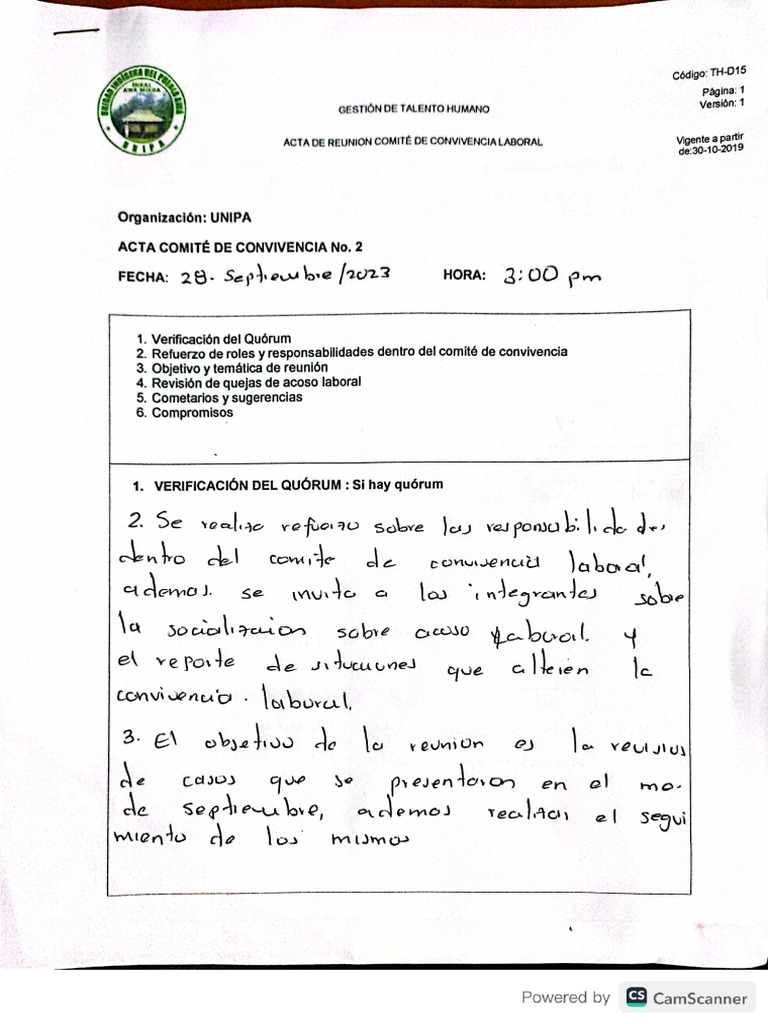 UNIDAD INDÍGENA DEL PUEBLO AWÁ
INKAL
AWA MIKUA
UNIPA
Código: TH-D15
Página: 1
Versión: 1
GESTIÓN DE TALENTO HUMANO
ACTA DE REUNION COMITÉ DE CONVIVENCIA LABORAL
Vigente a partir
de:30-10-2019
Organización: UNIPA
ACTA COMITÉ DE CONVIVENCIA No. 2
FECHA: 28. Septiembre/2023 HORA: 3:00 pm
1. Verificación del Quórum
2. Refuerzo de roles y responsabilidades dentro del comité de convivencia
3. Objetivo y temática de reunión
4. Revisión de quejas de acoso laboral
5. Cometarios y sugerencias
6. Compromisos
1. VERIFICACIÓN DEL QUÓRUM : Si hay quórum
2. Se realizo refuerzo sobre las responsabilidades
dentro del comite de convivencia laboral,
ademas. se invito a los integrantes sobre
la socializaion sobre acoso laboral. y
el reporte de situciones que alteren la
convivencia. laboral.
3. El objetivo de la reunion es la revision
de casos que se presentaron en el
de septiembre, ademas realizar el segui
miento de los mismos
Powered by CS CamScanner